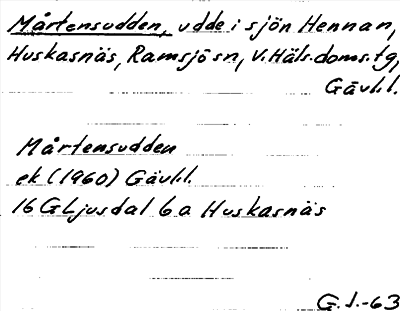 Mårtensudden, udde i sjön Hennan,
Huskasnäs, Ramsjö sn, V. Häls. doms. tg,
Gävl.l.
Mårtensudden
ek (1960) Gävl.l.
16 G Ljusdal 6 a Huskasnäs
G.J.-63